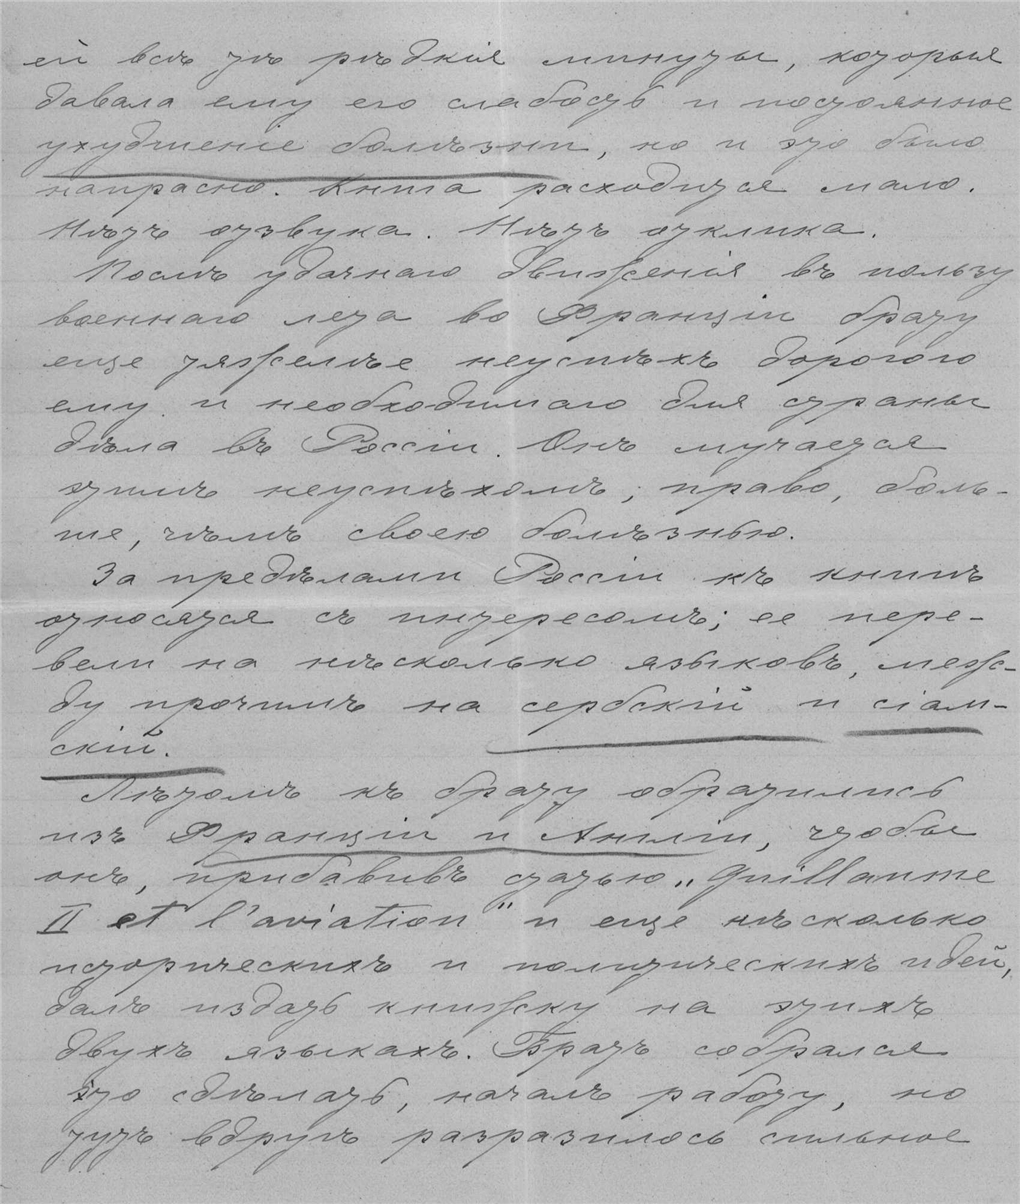 ей всѣ тѣ рѣдкія минуты, которыя
давала ему его слабость и постоянное
ухудшеніе болѣзни, но и это было
напрасно. Книга расходится мало.
Нѣтъ отзвука. Нѣтъ отклика.
Послѣ удачнаго движенія въ пользу
военнаго лета во Франціи брату
еще тяжелѣе неуспѣхъ дорогого
ему и необходимаго для страны
дѣла въ Россіи. Онъ мучается
этимъ неуспѣхомъ, право, боль-
ше, чѣмъ своею болѣзнью.
За предѣлами Россіи къ книгѣ
относятся съ интересомъ; ее пере-
вели на нѣсколько языковъ, меж-
ду прочимъ на сербскій и сіам-
скій.
Лѣтомъ къ брату обратились
изъ Франціи и Англіи, чтобы
онъ, прибавивъ статью „Guillaume
II et l'aviation" и еще нѣсколько
историческихъ и политическихъ идей,
далъ издать книжку на этихъ
двухъ языкахъ. Братъ собрался
это сдѣлать, началъ работу, но
тутъ вдругъ разразилось сильное